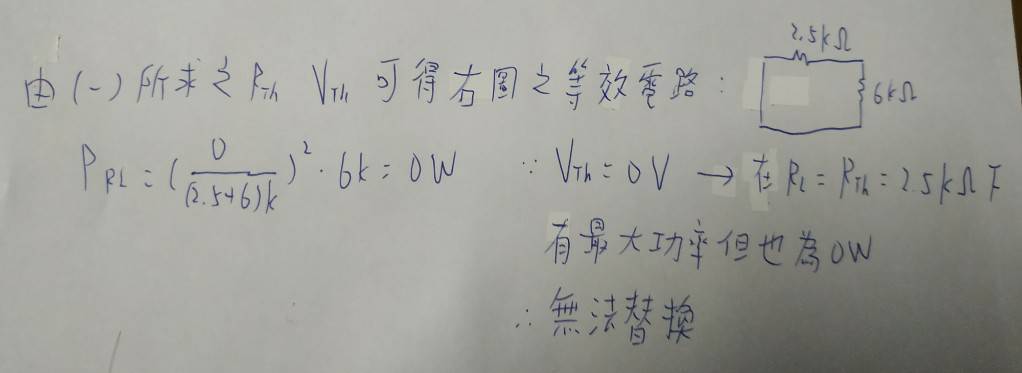 2.5kΩ
由(一)所求之 RTh VTh 可得右圖之等效電路:
6kΩ
PRL = (0/(2.5+6)k)²·6k = 0W ∵ VTh = 0V → 在 RL = RTh = 2.5kΩ 下
有最大功率但也為0W
∴ 無法替換